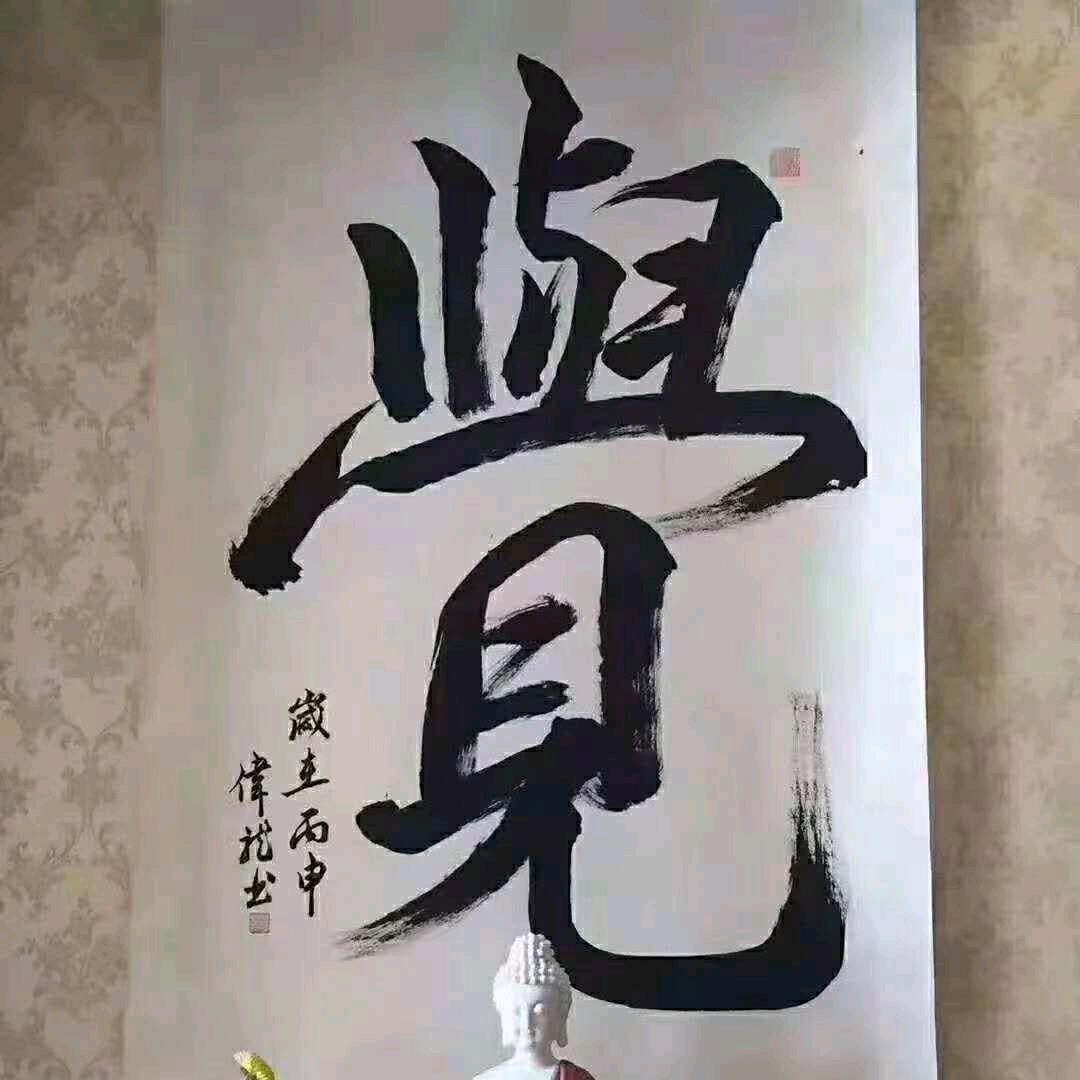 覺
歲在丙申
偉龍书